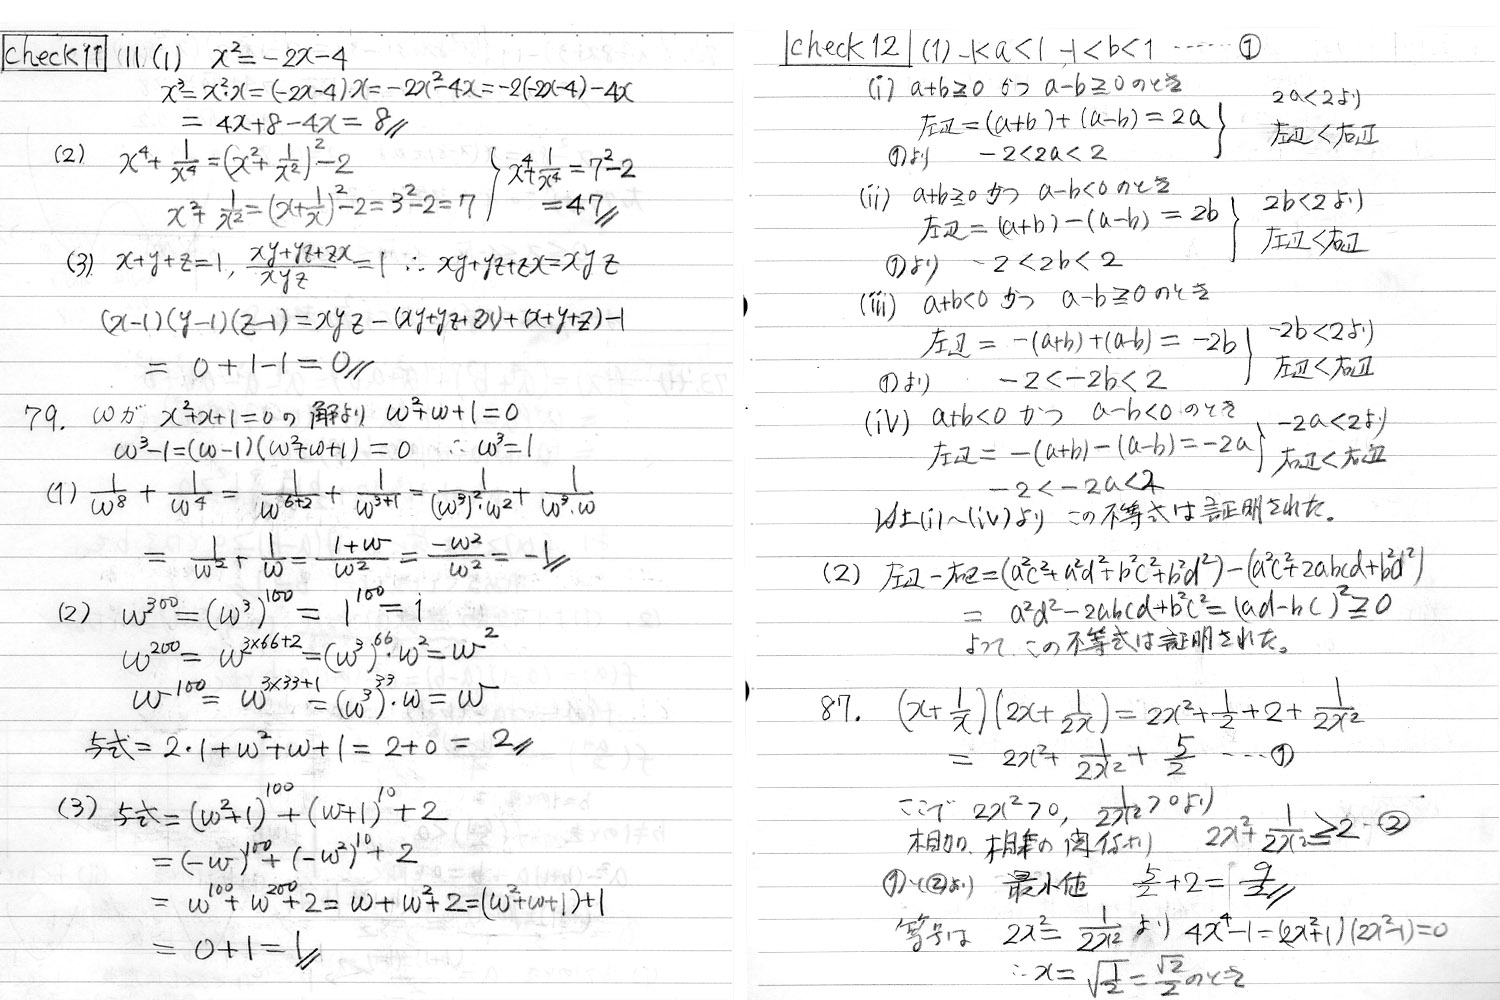 check 11 11.(1) x²=-2x-4
x³=x²·x=(-2x-4)·x=-2x²-4x=-2(-2x-4)-4x
=4x+8-4x=8
(2) x⁴+1/x⁴=(x²+1/x²)²-2
x²+1/x²=(x+1/x)²-2=3²-2=7
x⁴+1/x⁴=7²-2
=47
(3) x+y+z=1, (xy+yz+zx)/xyz=1 ∴xy+yz+zx=xyz
(x-1)(y-1)(z-1)=xyz-(xy+yz+zx)+(x+y+z)-1
=0+1-1=0
79. ωが x²+x+1=0の解より ω²+ω+1=0
ω³-1=(ω-1)(ω²+ω+1)=0 ∴ω³=1
(1) 1/ω⁸+1/ω⁴=1/ω⁶⁺²+1/ω³⁺¹=1/(ω³)²·ω²+1/ω³·ω
=1/ω²+1/ω=(1+ω)/ω²=-ω²/ω²=-1
(2) ω³⁰⁰=(ω³)¹⁰⁰=1¹⁰⁰=1
ω²⁰⁰=ω³ˣ⁶⁶⁺²=(ω³)⁶⁶·ω²=ω²
ω¹⁰⁰=ω³ˣ³³⁺¹=(ω³)³³·ω=ω
与式=2·1+ω²+ω+1=2+0=2
(3) 与式=(ω²+1)¹⁰⁰+(ω+1)¹⁰+2
=(-ω)¹⁰⁰+(-ω²)¹⁰+2
=ω¹⁰⁰+ω²⁰⁰+2=ω+ω²+2=(ω²+ω+1)+1
=0+1=1
check 12 (1) -1<a<1 -1<b<1 ……①
(i) a+b≧0 かつ a-b≧0のとき
左辺=(a+b)+(a-b)=2a
①より -2<2a<2
2a<2より
左辺<右辺
(ii) a+b≧0 かつ a-b<0のとき
左辺=(a+b)-(a-b)=2b
①より -2<2b<2
2b<2より
左辺<右辺
(iii) a+b<0 かつ a-b≧0のとき
左辺=-(a+b)+(a-b)=-2b
①より -2<-2b<2
-2b<2より
左辺<右辺
(iv) a+b<0 かつ a-b<0のとき
左辺=-(a+b)-(a-b)=-2a
-2<-2a<2
-2a<2より
右辺<右辺
以上(i)~(iv)より この不等式は証明された。
(2) 左辺-右辺=(a²c²+a²d²+b²c²+b²d²)-(a²c²+2abcd+b²d²)
=a²d²-2abcd+b²c²=(ad-bc)²≧0
よって、この不等式は証明された。
87. (x+1/x)(2x+1/2x)=2x²+1/2+2+1/2x²
=2x²+1/2x²+5/2 …①
ここで 2x²>0, 1/2x²>0より
相加、相乗の関係より 2x²+1/2x²≧2…②
①、②より 最小値 5/2+2=9/2
等号は 2x²=1/2x² より 4x⁴-1=(2x²+1)(2x²-1)=0
∴x=√1/2=√2/2のとき